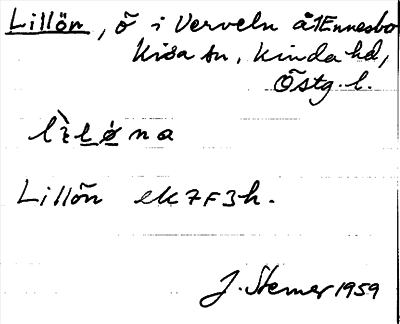 Lillön, ö i Verveln å 1Ennesbo
Kisa sn, Kinda hd,
Östg. l.
lìløna
Lillön ek 7F3h.
J. Stemer 1959